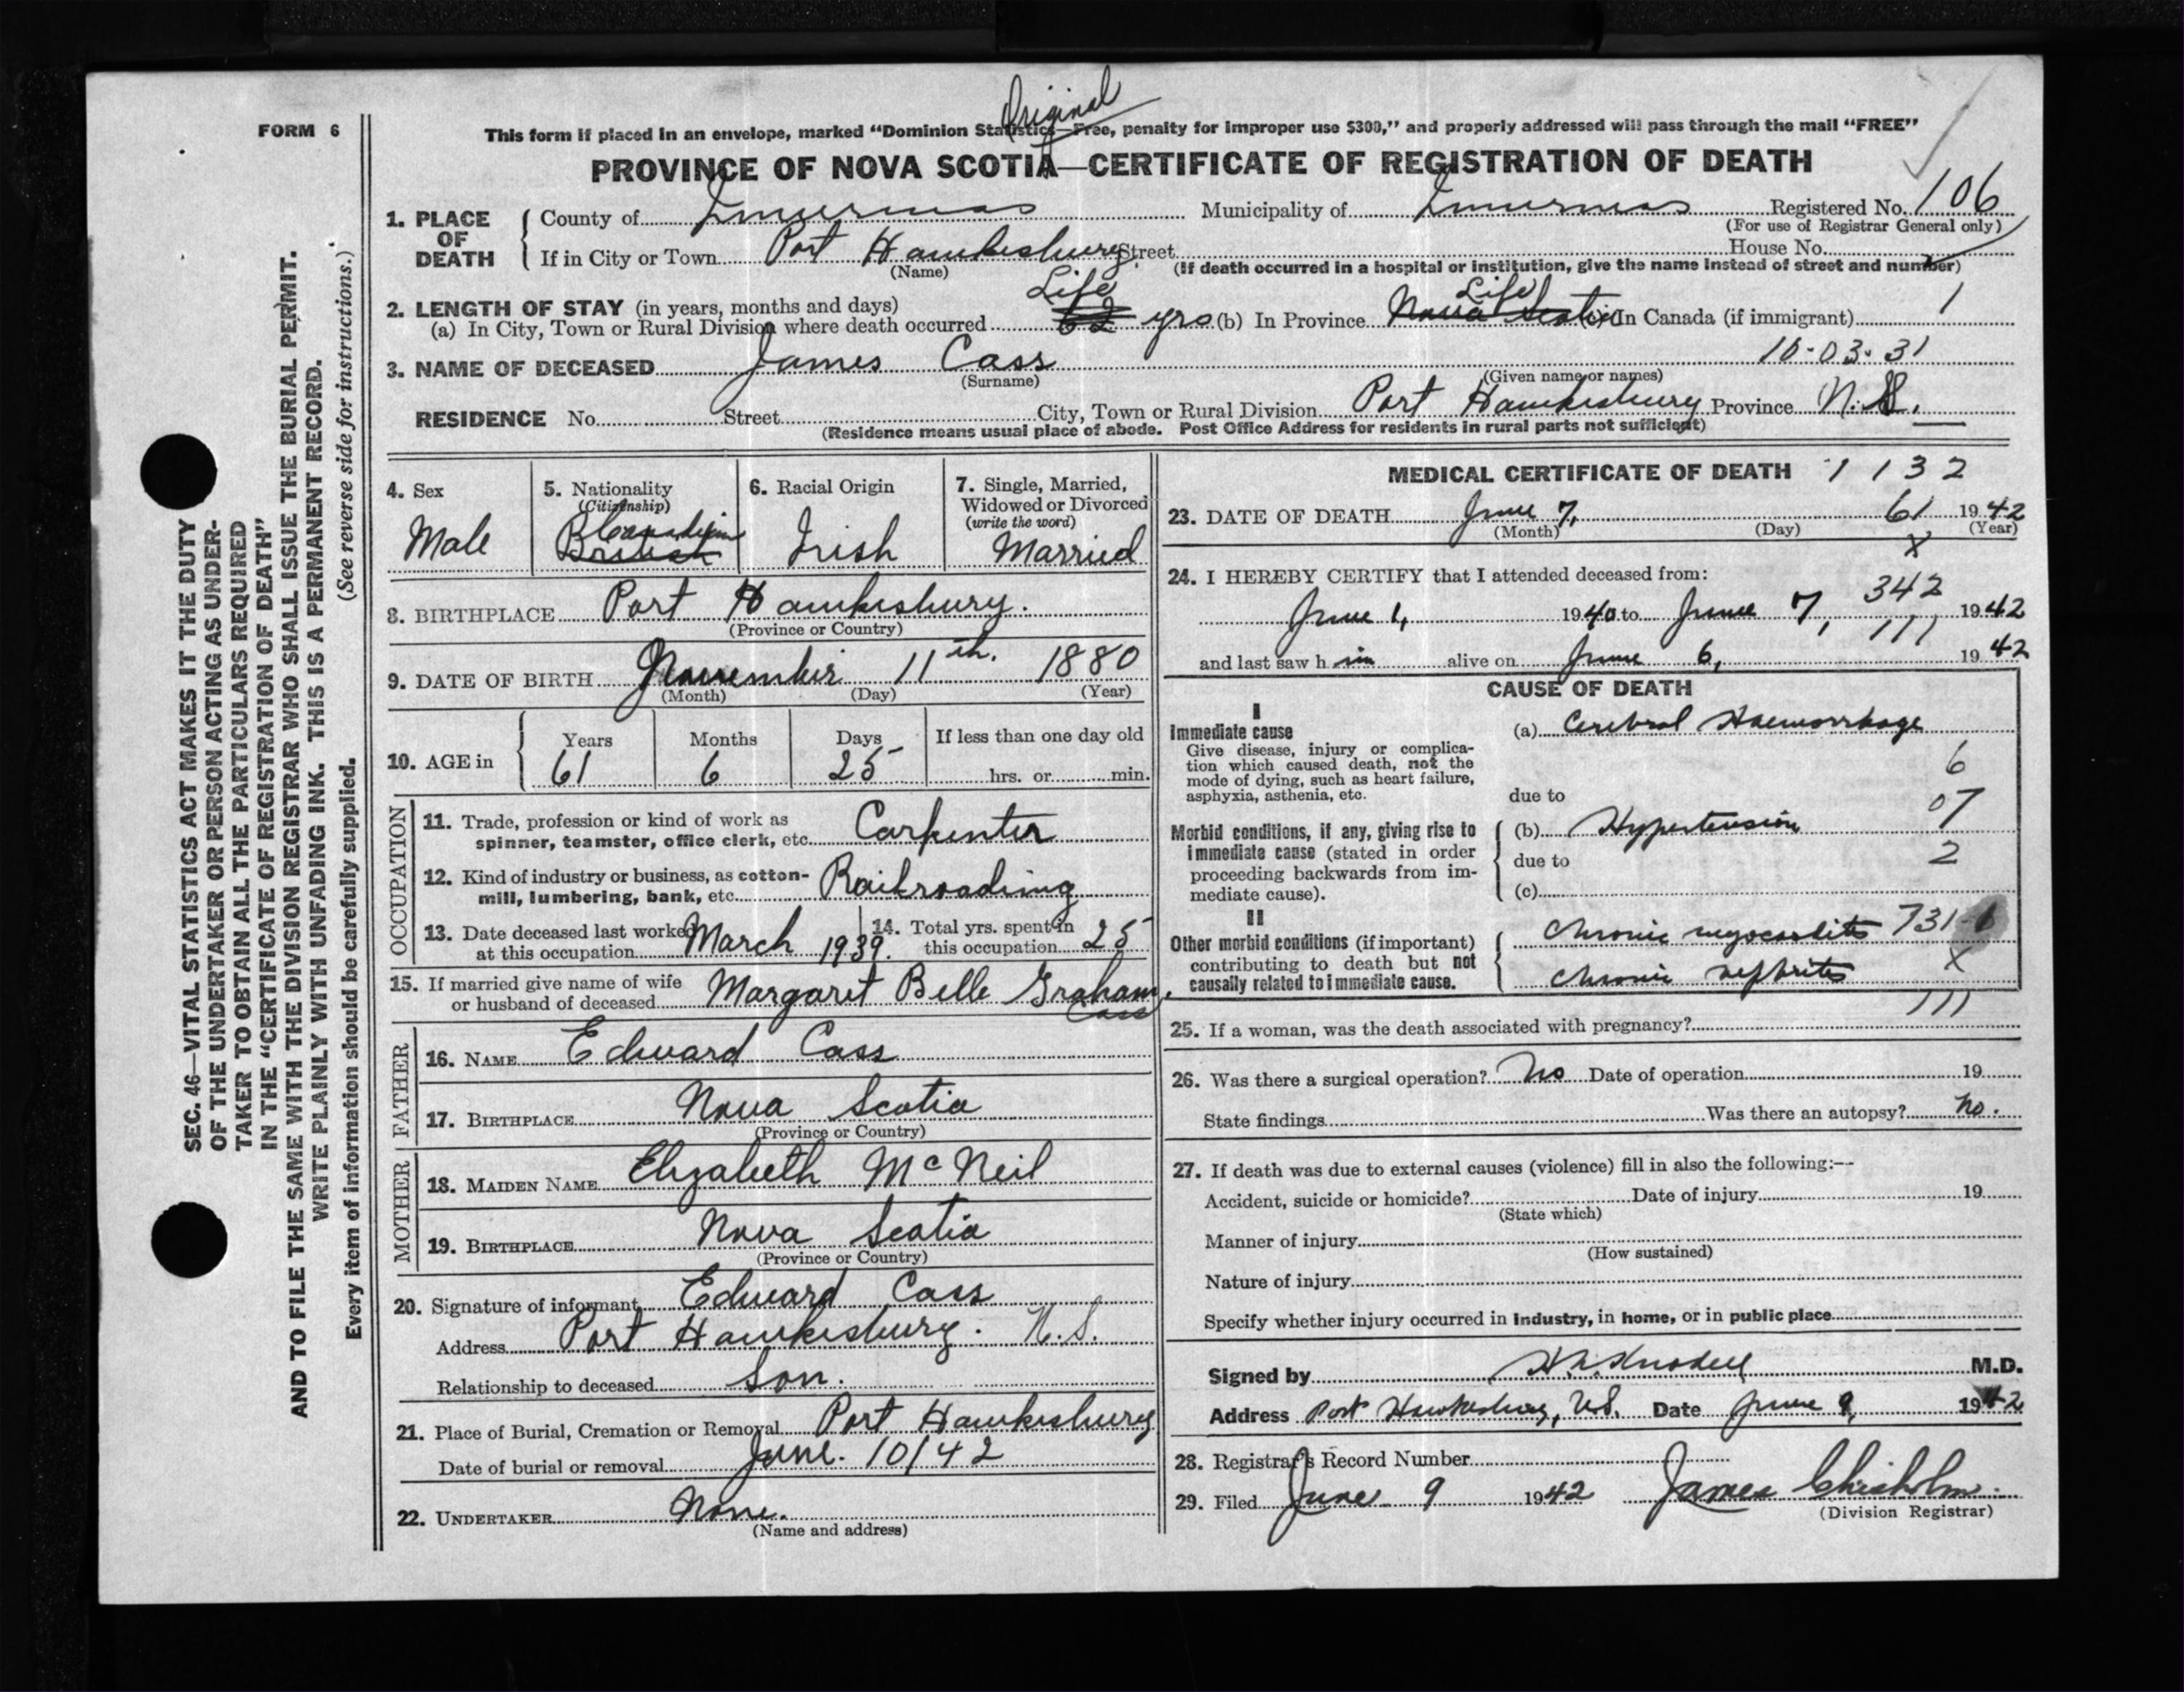 Original
FORM 6
This form if placed in an envelope, marked "Dominion Statistics—Free, penalty for improper use $300," and properly addressed will pass through the mail "FREE"
PROVINCE OF NOVA SCOTIA—CERTIFICATE OF REGISTRATION OF DEATH
1. PLACE OF DEATH
County of Inverness Municipality of Inverness Registered No. 106
(For use of Registrar General only)
If in City or Town Port Hawkesbury Street House No.
(Name) (If death occurred in a hospital or institution, give the name instead of street and number)
2. LENGTH OF STAY (in years, months and days) Life Life
(a) In City, Town or Rural Division where death occurred 62 yrs (b) In Province Nova Scotia (c) In Canada (if immigrant) 1
10-03-31
3. NAME OF DECEASED James Cass
(Surname) (Given name or names)
RESIDENCE No. Street City, Town or Rural Division Port Hawkesbury Province N.S.
(Residence means usual place of abode. Post Office Address for residents in rural parts not sufficient)
4. Sex
Male
5. Nationality
(Citizenship)
Canadian
British
6. Racial Origin
Irish
7. Single, Married,
Widowed or Divorced
(write the word)
Married
8. BIRTHPLACE Port Hawkesbury.
(Province or Country)
9. DATE OF BIRTH November 11th. 1880
(Month) (Day) (Year)
10. AGE in
Years Months Days If less than one day old
61 6 25 hrs. or min.
OCCUPATION
11. Trade, profession or kind of work as
spinner, teamster, office clerk, etc. Carpenter
12. Kind of industry or business, as cotton-
mill, lumbering, bank, etc. Railroading
13. Date deceased last worked
at this occupation March 1939.
14. Total yrs. spent in
this occupation 25
15. If married give name of wife
or husband of deceased Margaret Belle Graham.
Cass
FATHER
16. NAME Edward Cass
17. BIRTHPLACE Nova Scotia
(Province or Country)
MOTHER
18. MAIDEN NAME Elizabeth McNeil
19. BIRTHPLACE Nova Scotia
(Province or Country)
20. Signature of informant Edward Cass
Address Port Hawkesbury. N.S.
Relationship to deceased Son.
21. Place of Burial, Cremation or Removal Port Hawkesbury
Date of burial or removal June. 10/42
22. UNDERTAKER None.
(Name and address)
MEDICAL CERTIFICATE OF DEATH 1132
23. DATE OF DEATH June 7, 61 1942
(Month) (Day) (Year)
X
24. I HEREBY CERTIFY that I attended deceased from:
342
June 1, 1940 to June 7, 1942
111
and last saw him alive on June 6, 1942
CAUSE OF DEATH
I
Immediate cause
Give disease, injury or complica-
tion which caused death, not the
mode of dying, such as heart failure,
asphyxia, asthenia, etc.
(a) Cerebral Haemorrhage
6
due to
07
Morbid conditions, if any, giving rise to
immediate cause (stated in order
proceeding backwards from im-
mediate cause).
(b) Hypertension
due to 2
(c)
II
Other morbid conditions (if important)
contributing to death but not
causally related to immediate cause.
Chronic myocarditis 731-6
X
Chronic nephritis
111
25. If a woman, was the death associated with pregnancy?
26. Was there a surgical operation? No Date of operation 19
State findings Was there an autopsy? No.
27. If death was due to external causes (violence) fill in also the following:--
Accident, suicide or homicide? Date of injury 19
(State which)
Manner of injury
(How sustained)
Nature of injury
Specify whether injury occurred in industry, in home, or in public place
Signed by M.D.
Address Port Hawkesbury, N.S. Date June 9, 1942
28. Registrar's Record Number
29. Filed June 9 1942 James Chisholm.
(Division Registrar)
SEC. 46—VITAL STATISTICS ACT MAKES IT THE DUTY
OF THE UNDERTAKER OR PERSON ACTING AS UNDER-
TAKER TO OBTAIN ALL THE PARTICULARS REQUIRED
IN THE "CERTIFICATE OF REGISTRATION OF DEATH"
AND TO FILE THE SAME WITH THE DIVISION REGISTRAR WHO SHALL ISSUE THE BURIAL PERMIT.
WRITE PLAINLY WITH UNFADING INK. THIS IS A PERMANENT RECORD.
Every item of information should be carefully supplied. (See reverse side for instructions.)